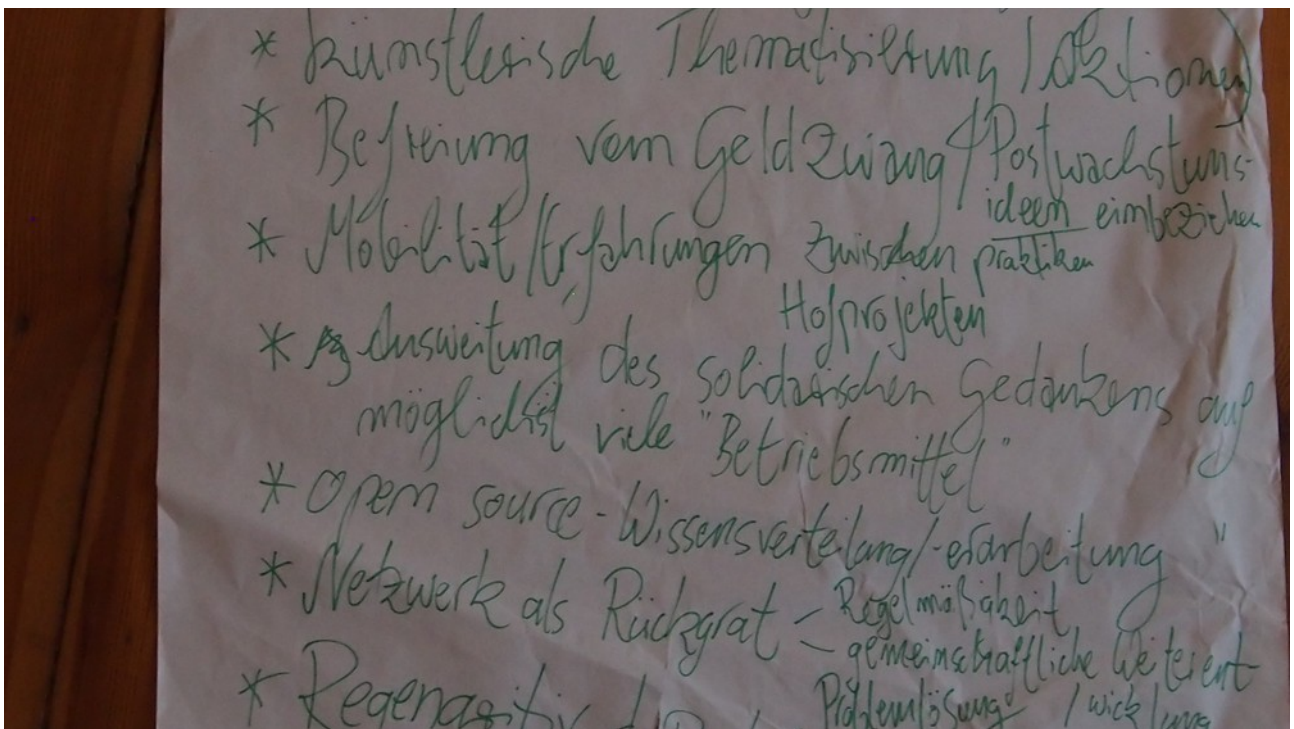 * künstlerische Thematisierung / Aktionen)
* Befreiung vom Geldzwang / Postwachstums-
ideen einbeziehen
praktiken
* Mobilität/Erfahrungen zwischen
Hofprojekten
* Ausweitung des solidarischen Gedankens auf
möglichst viele "Betriebsmittel"
* Open source-Wissensverteilung/-erarbeitung "
* Netzwerk als Rückgrat - Regelmäßigkeit
- gemeinschaftliche Weiterent-
Problemlösung / wicklung
* Regenerativ